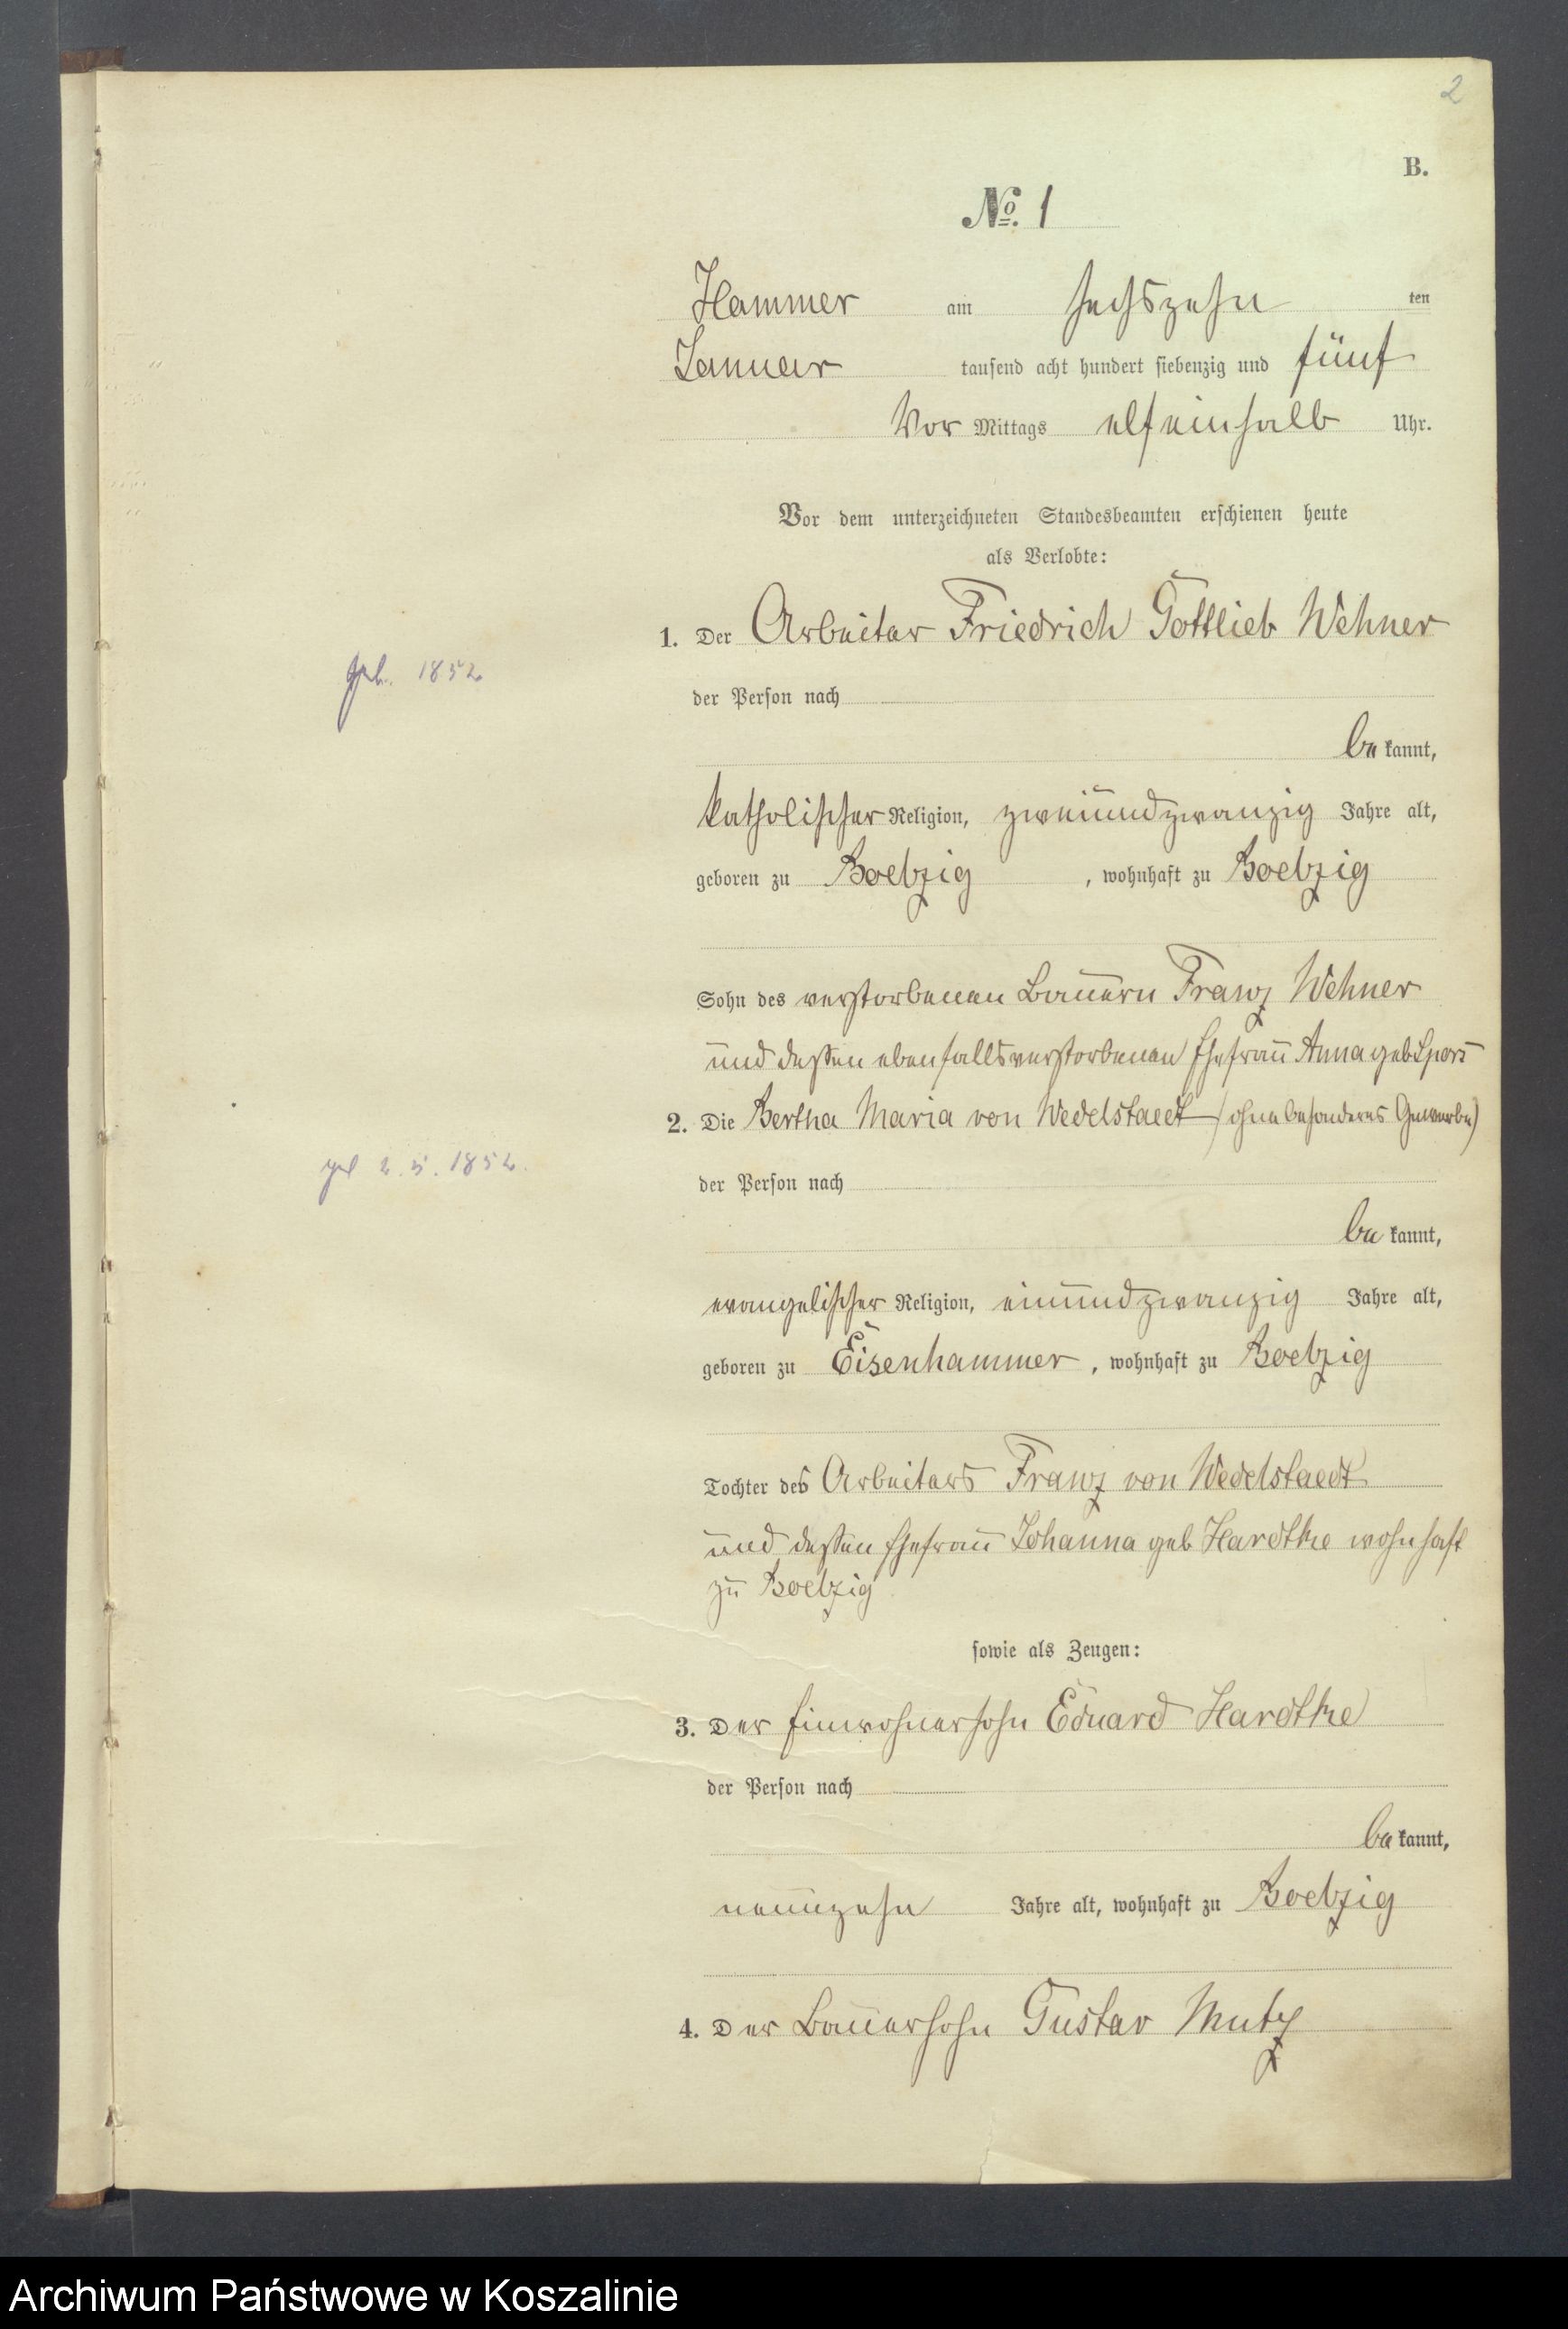 2
B.
No. 1
Hammer am sechszehn ten
Januar tausend acht hundert siebenzig und fünf
Vor Mittags elf einhalb Uhr.
Vor dem unterzeichneten Standesbeamten erschienen heute
als Verlobte:
1. Der Arbeiter Friedrich Gottlieb Wehner
geb. 1852
der Person nach
be kannt,
katholischer Religion, zweiundzwanzig Jahre alt,
geboren zu Boelzig, wohnhaft zu Boelzig
Sohn des verstorbenen Bauern Franz Wehner
und dessen ebenfalls verstorbenen Ehefrau Anna geb
2. Die Bertha Maria von Wedelstaedt (ohne besonderes Gewerbe)
2. 5. 1852.
der Person nach
be kannt,
evangelischer Religion, einundzwanzig Jahre alt,
geboren zu Eisenhammer, wohnhaft zu Boelzig
Tochter des Arbeiters Franz von Wedelstaedt
und dessen Ehefrau Johanna geb Hardtke wohnhaft
zu Boelzig
sowie als Zeugen:
3. Der Einwohnersohn Eduard Hardtke
der Person nach
be kannt,
neunzehn Jahre alt, wohnhaft zu Boelzig
4. Der Bauersohn Gustav Mutz
Archiwum Państwowe w Koszalinie